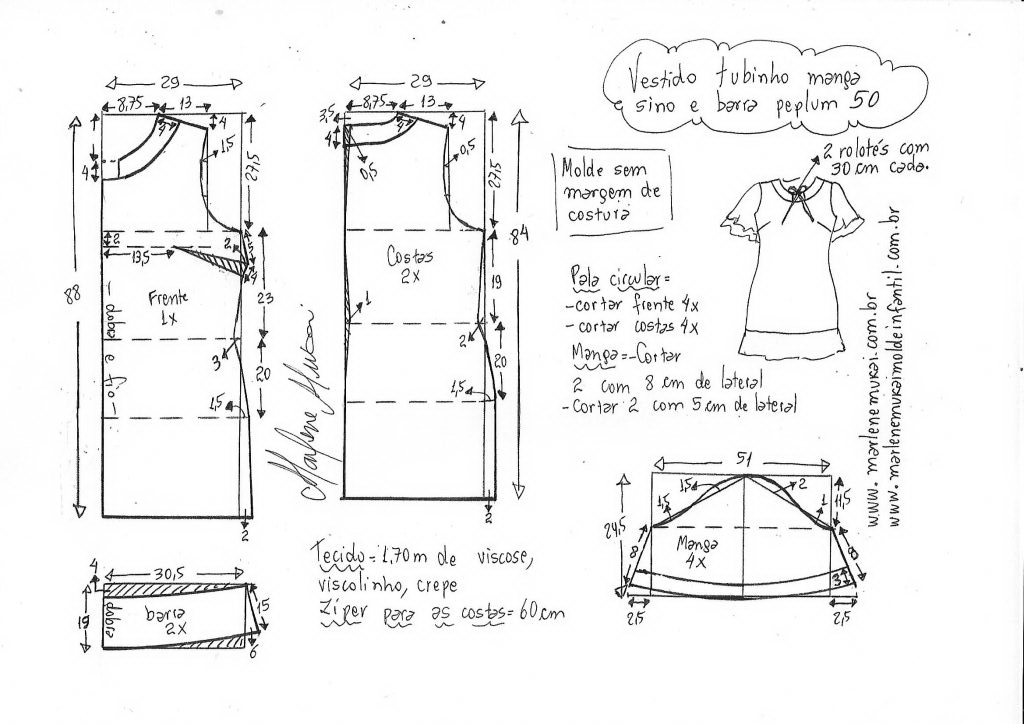 Vestido tubinho manga
sino e barra peplum 50
2 rolotés com
30 cm cada.
Molde sem
margem de
costura
Pala circular =
- cortar frente 4x
- cortar costas 4x
Manga = - Cortar
2 com 8 cm de lateral
- Cortar 2 com 5 cm de lateral
www.marlenemukai.com.br
www.marlenemukaimoldeinfantil.com.br
29
8,75
13
4
4
4
1,5
27,5
88
2
13,5
2
4
Frente
1x
- dobra e fio -
23
3
20
1,5
2
Marlene Mukai
29
8,75
13
3,5
4
4
4
0,5
0,5
27,5
84
Costas
2x
19
1
2
20
1,5
2
4
30,5
19
dobra
barra
2x
15
6
Tecido = 1,70 m de viscose,
viscolinho, crepe
Zíper para as costas = 60 cm
51
1,5
2
1,5
1
11,5
24,5
8
8
Manga
4x
3
2,5
2,5